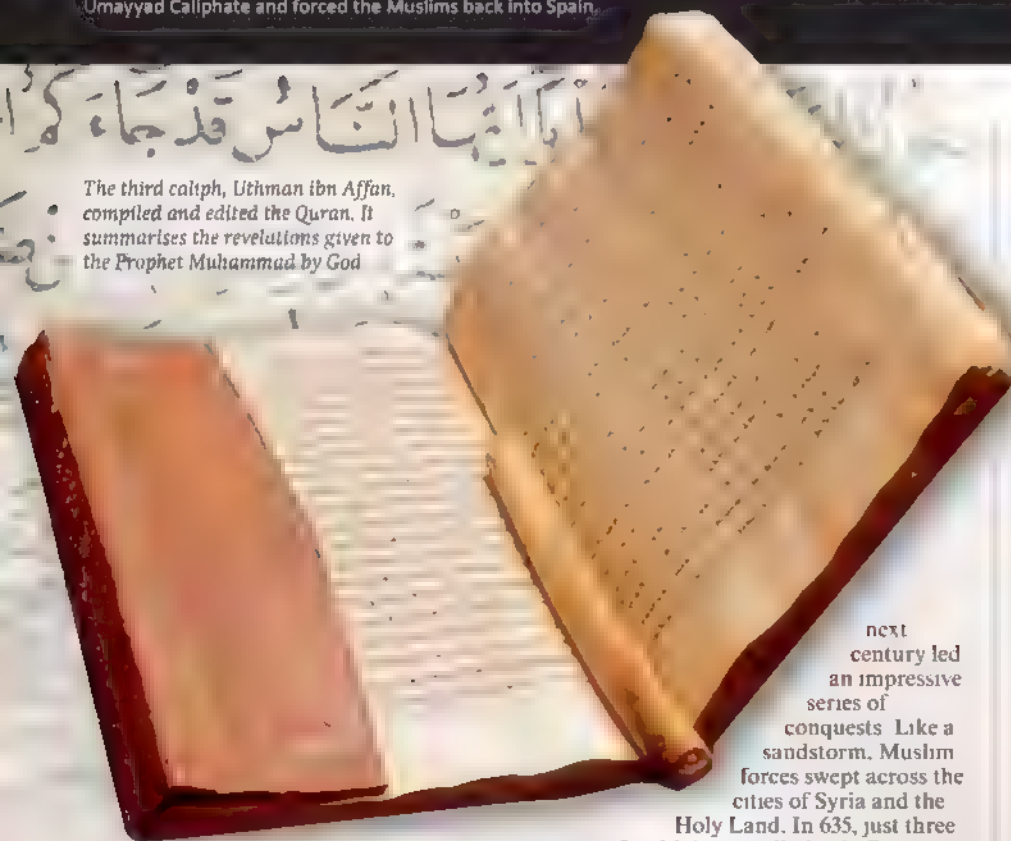 Umayyad Caliphate and forced the Muslims back into Spain.
أيها الناس قد جاءكم
The third caliph, Uthman ibn Affan,
compiled and edited the Quran. It
summarises the revelations given to
the Prophet Muhammad by God
next
century led
an impressive
series of
conquests Like a
sandstorm, Muslim
forces swept across the
cities of Syria and the
Holy Land. In 635, just three